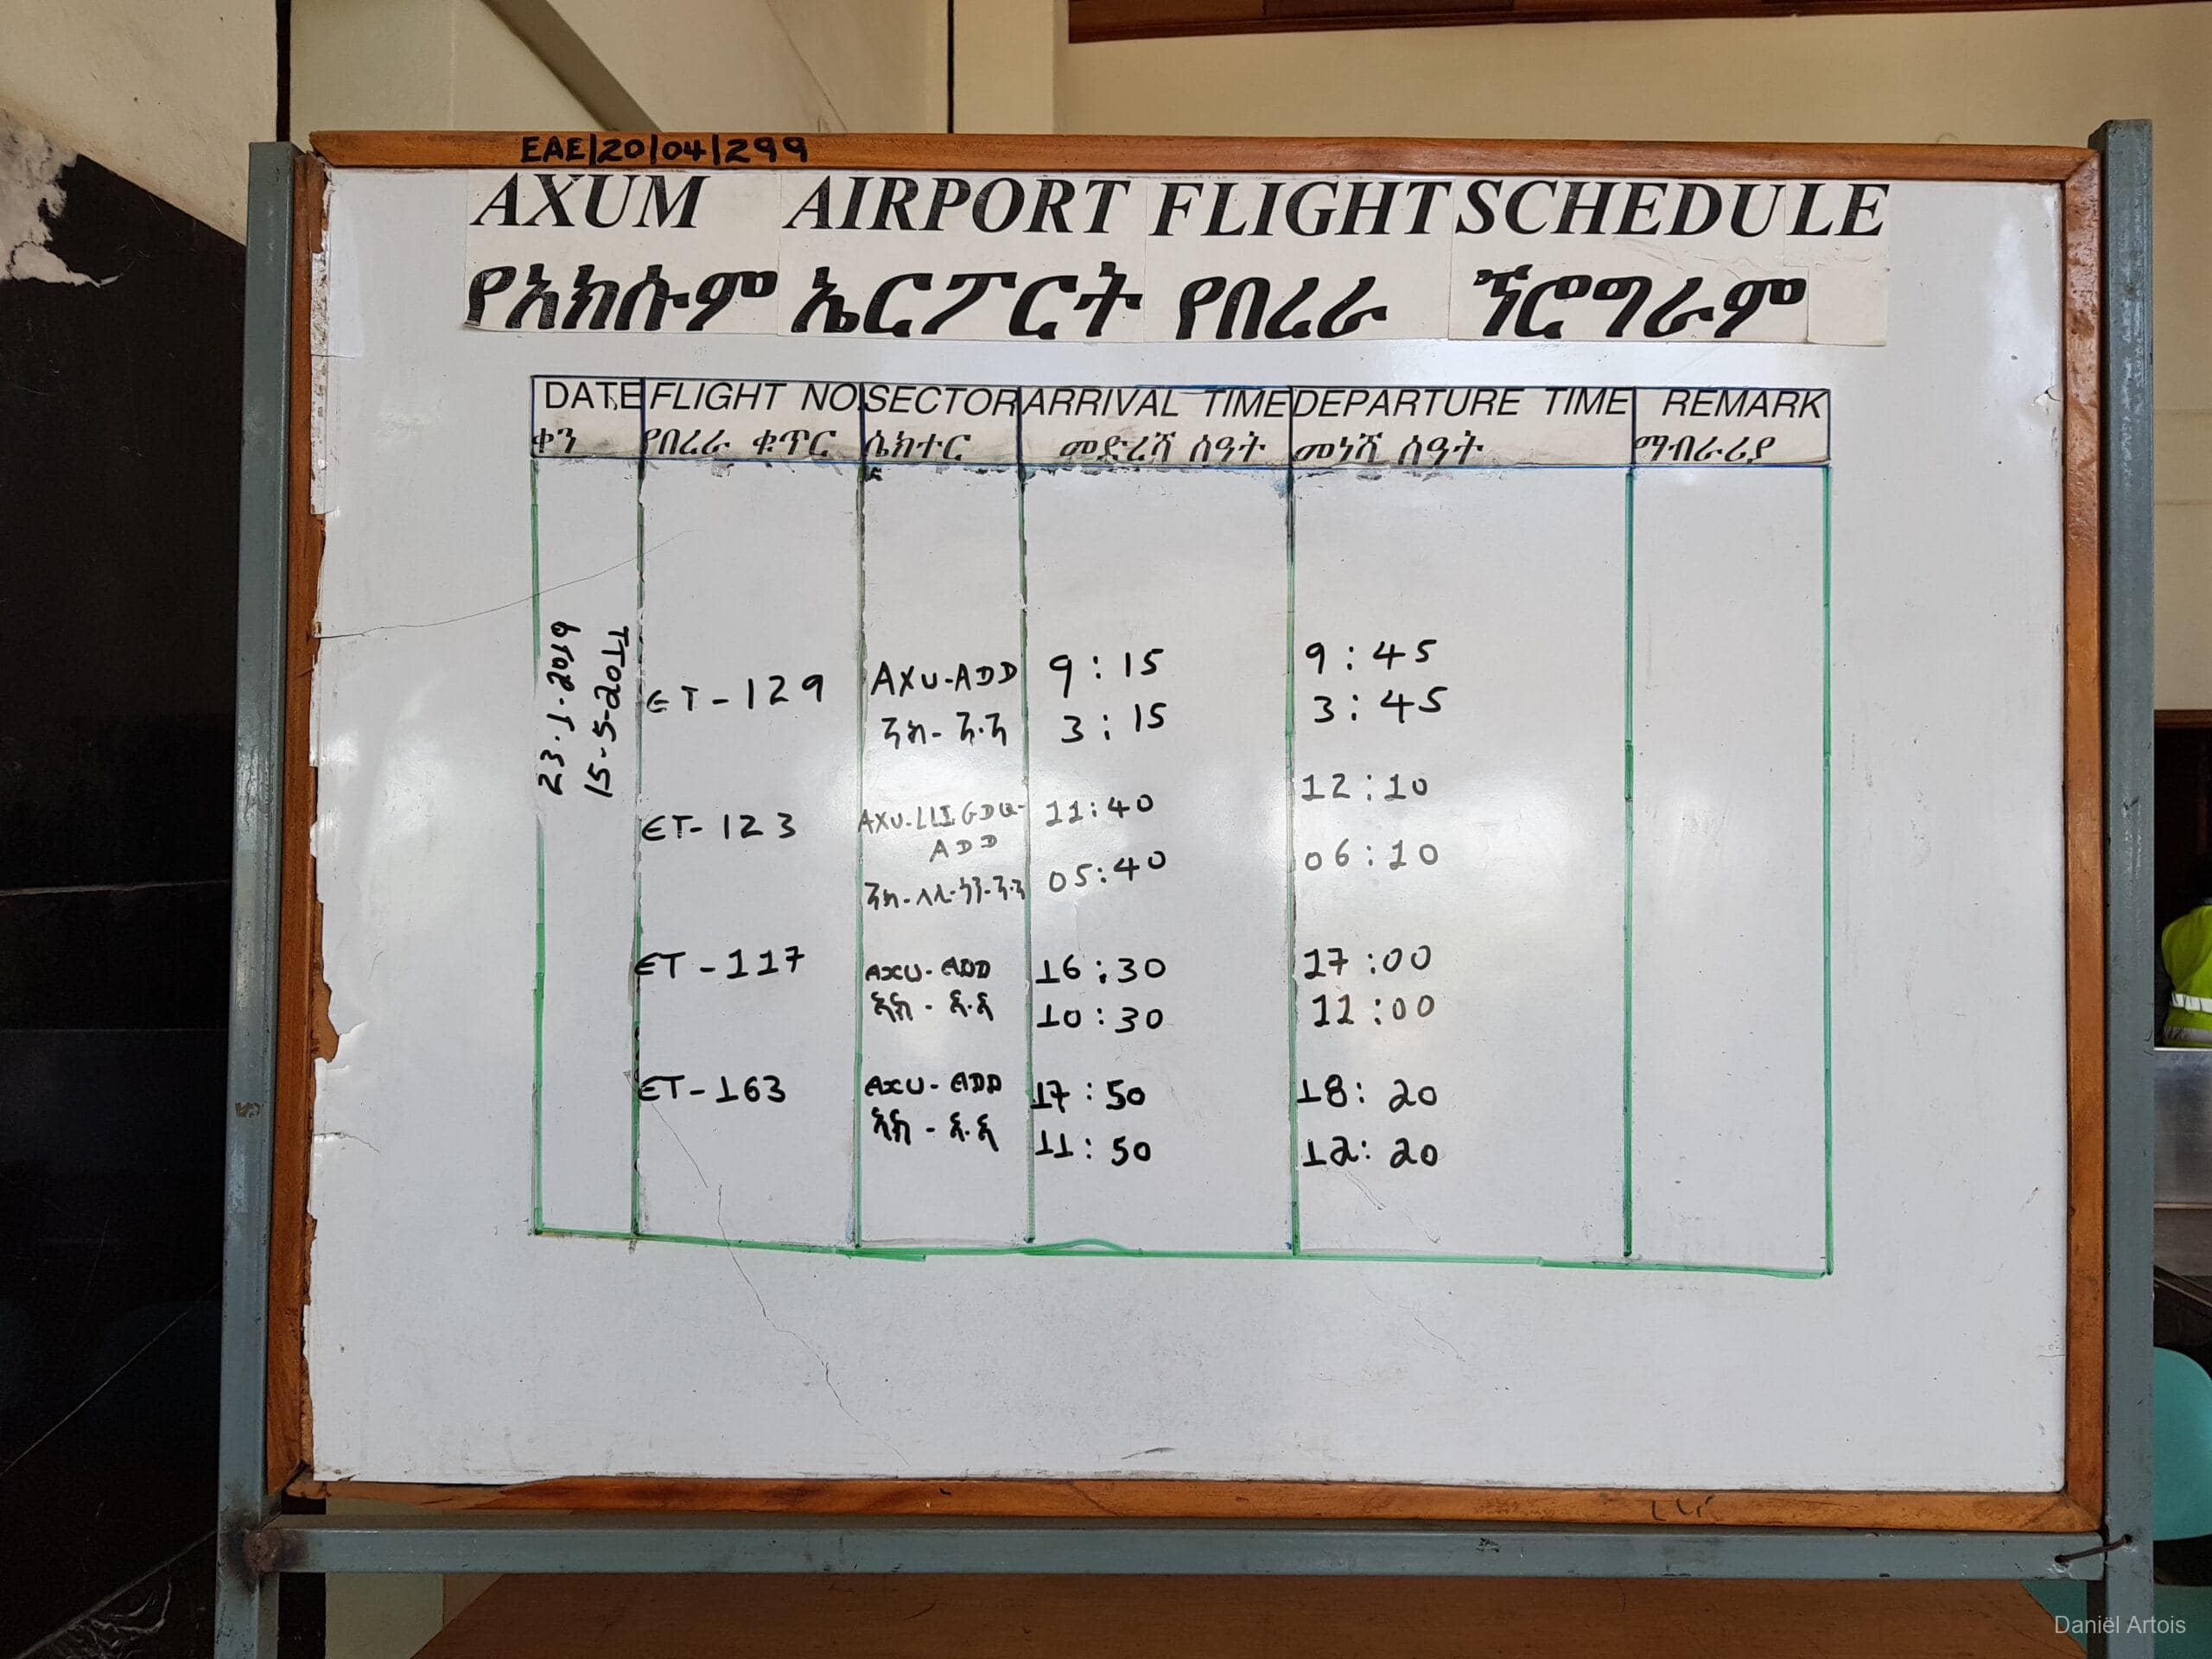 EAE|20|04|299
AXUM AIRPORT FLIGHT SCHEDULE
የአክሱም ኤርፖርት የበረራ ፕሮግራም
DATE FLIGHT NO. SECTOR ARRIVAL TIME DEPARTURE TIME REMARK
ቀን የበረራ ቁጥር ሴክተር መድረሻ ሰዓት መነሻ ሰዓት ማብራሪያ
23.1.2019
15-5-2011
ET-129 AXU-ADD 9:15 9:45
አክ-አ.አ 3:15 3:45
ET-123 AXU-LLI GDQ- 11:40 12:10
ADD
አክ-ላሊ-ጎን-አ.አ 05:40 06:10
ET-117 AXU-ADD 16:30 17:00
አክ-አ.አ 10:30 11:00
ET-163 AXU-ADD 17:50 18:20
አክ-አ.አ 11:50 12:20
Daniël Artois